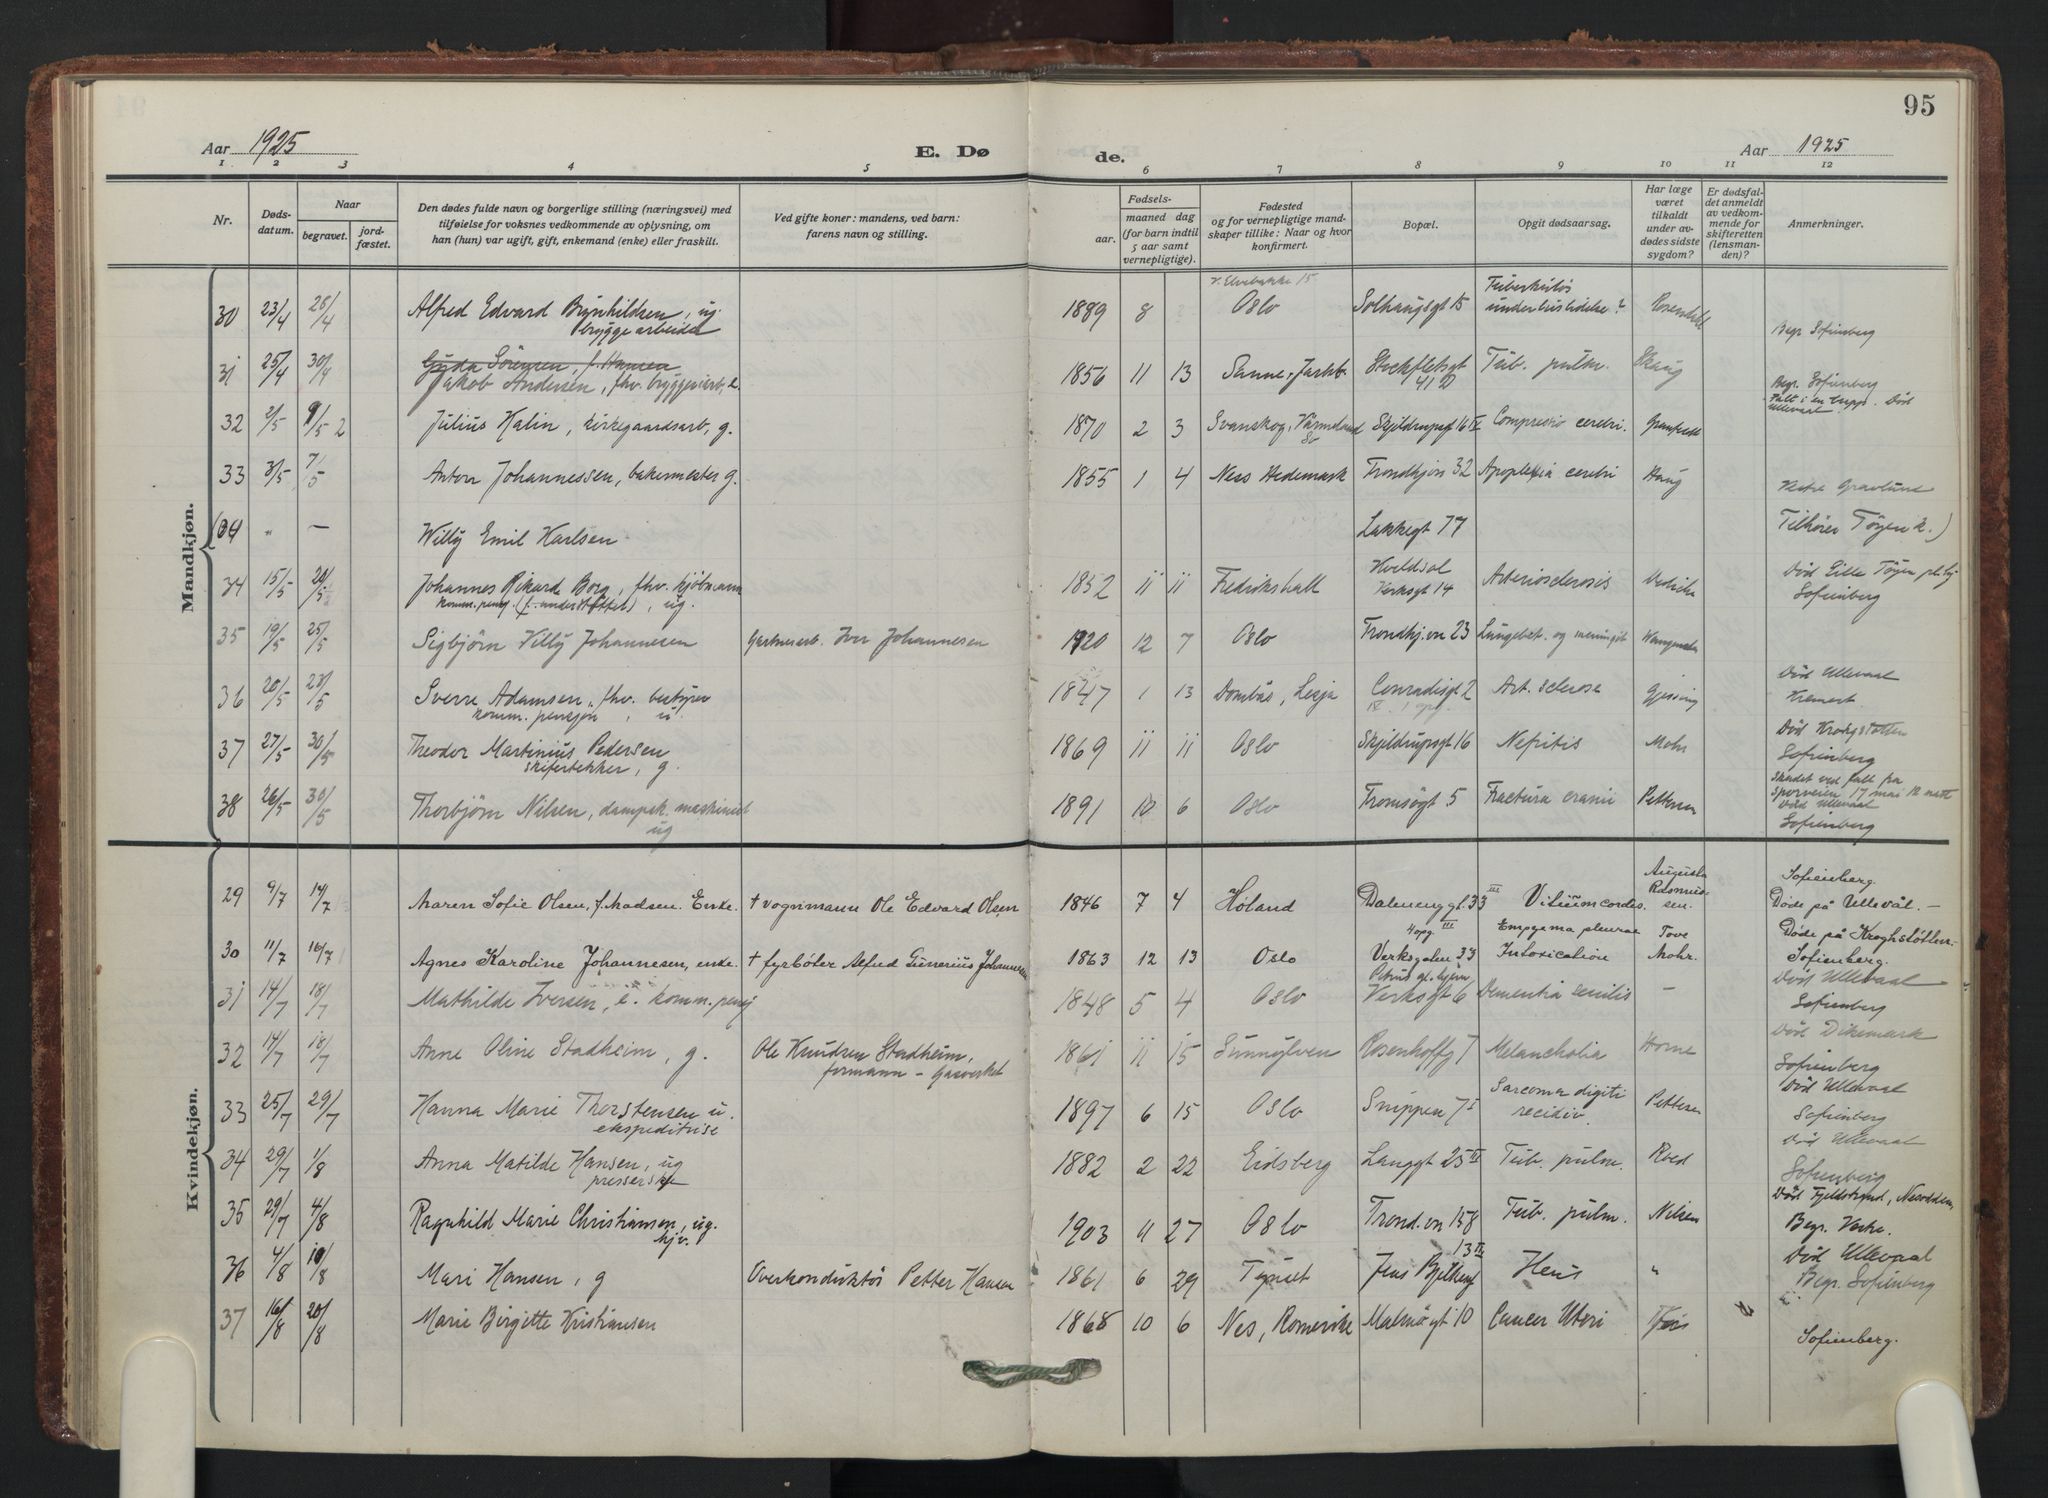 95
Aar 1925
E. Dø
de.
Aar 1925
1 2 3 4 5 6 7 8 9 10 11 12
Nr.
Døds-
datum.
Naar
begravet.
jord-
fæstet.
Den dødes fulde navn og borgerlige stilling (næringsvei) med
tilføielse for voksnes vedkommende av oplysning, om
han (hun) var ugift, gift, enkemand (enke) eller fraskilt.
Ved gifte koner: mandens, ved barn:
farens navn og stilling.
Fødsels-
aar.
maaned dag
(for barn indtil
5 aar samt
vernepligtige).
Fødested
og for vernepligtige mand-
skaper tillike: Naar og hvor
konfirmert.
Bopæl.
Opgit dødsaarsag.
Har læge
været
tilkaldt
under av-
dødes sidste
sygdom?
Er dødsfal-
det anmeldt
av vedkom-
mende for
skifteretten
(lensman-
den)?
Anmerkninger.
Mandkjøn.
30 23/4 28/4 Alfred Edvard Brynhildsen, ug. 1889 8 Oslo Solhaugsgt 15 Tuberkuløs
bryggearbeider Begr. Sofienberg
31 25/4 30/4 Gyda Sørensen, f. Hansen
Jakob Andersen, fhv. bryggeriarb., e. 1856 11 13 Stockfletsgt 41 D Tub. pulm. Skaug
Begr. Sofienberg
32 2/5 9/5 2 Julius Halin, kirkegaardsarb, g. 1870 2 3 Svanskog, Värmeland Skjeldrupsgt 16 IV Compressio cerebri. Død
Ullevaal
33 3/5 7/5 Anton Johannessen, bakermester g. 1855 1 4 Ness Hedemark Trondhjvn 32 Apoplexia cerebri Haug
Vestre Gravlund
(34 " — Willy Emil Karlsen Lakkegt 77 Tilhører Tøyen k.)
34 15/5 20/5 Johannes Rikard Borg, fhv. kjøbmann 1852 11 11 Fredrikshald Hveldsal
Verksgt 14 Arteriosclerosis Død Eille Tøyen pl.hj
komm.pensj. (f. understøttet), ug. Sofienberg
35 19/5 25/5 Sigbjørn Villy Johannesen Gartnerarb. Iver Johannesen 1920 12 7 Oslo Trondhj.vn 23 Lungebet. og meningit
36 20/5 23/5 Sverre Adamsen, fhv. bestyrer 1847 1 13 Dombås, Lesja Conradisgt 2 Art. sclerose Gjessing Død Ullevaal
komm. pensjon, u. Kremert.
37 27/5 30/5 Theodor Martinius Pedersen 1869 11 11 Oslo Skjeldrupsgt 16 Nefritis Mohr Død Krohgstøtten
skifertekker, g. Sofienberg
38 26/5 30/5 Thorbjørn Nilsen, dampsk. maskinist 1891 10 6 Oslo Tromsøgt 5 Fractura cranii Pettersen Skadet ved fall fra
ug sporveien 17 mai 12 natt
Død Ullevaal
Sofienberg
Kvindekjøn.
29 9/7 14/7 Maren Sofie Olsen, f. Madsen. Enke. + vognmann Ole Edvard Olsen 1846 7 4 Høland Dalenenggt. 33 III Vitium cordis. Augusta
Rasmus-
sen. Sofienberg.
Døde på Ullevål. —
30 11/7 16/7 Agnes Karoline Johannesen, enke. + fyrbøter Alfred Gunerius Johannesen 1863 12 13 Oslo Verksgaten 33
4 opg. III Empyema pleurae
Intoxication Tove
Mohr. Døde på Kroghstøtten.
Sofienberg.
31 14/7 18/7 Mathilde Iversen, e. komm. pensj 1848 5 4 Oslo Verksgt 6 Dementia senilis — Død Ullevaal
Sofienberg
32 14/7 18/7 Anne Oline Stadheim, g. Ole Knudsen Stadheim,
formann – Gasverket 1861 11 15 Sunnylven Rosenhoffg 7 Melancholia Horne Død Dikemark
Sofienberg
33 25/7 29/7 Hanna Marie Thorstensen u.
ekspeditrise 1897 6 15 Oslo Snippen 7 I Sarcoma digiti
recidiv. Pettersen Død Ullevaal
Sofienberg
34 29/7 1/8 Anna Matilde Hansen, ug
presserske 1882 2 22 Eidsberg Langgt 25 III Tub. pulm. Roed Død Ullevaal
Sofienberg
35 29/7 4/8 Ragnhild Marie Christiansen, ug.
hjv. 1903 4 27 Oslo Trond.vn 158 Tub. pulm. Nilsen Død Fjeldstrand, Nesodden,
Begr. Vestre.
36 4/8 10/8 Mari Hansen, g Overkonduktør Petter Hansen 1861 6 29 Tynset Jens Bjelkesgt 13 III " Død Ullevaal
Begr. Sofienberg
37 16/8 20/8 Marie Birgitte Kristiansen 1868 10 6 Nes, Romerike Malmøgt 10 Cancer Uteri
Sofienberg.